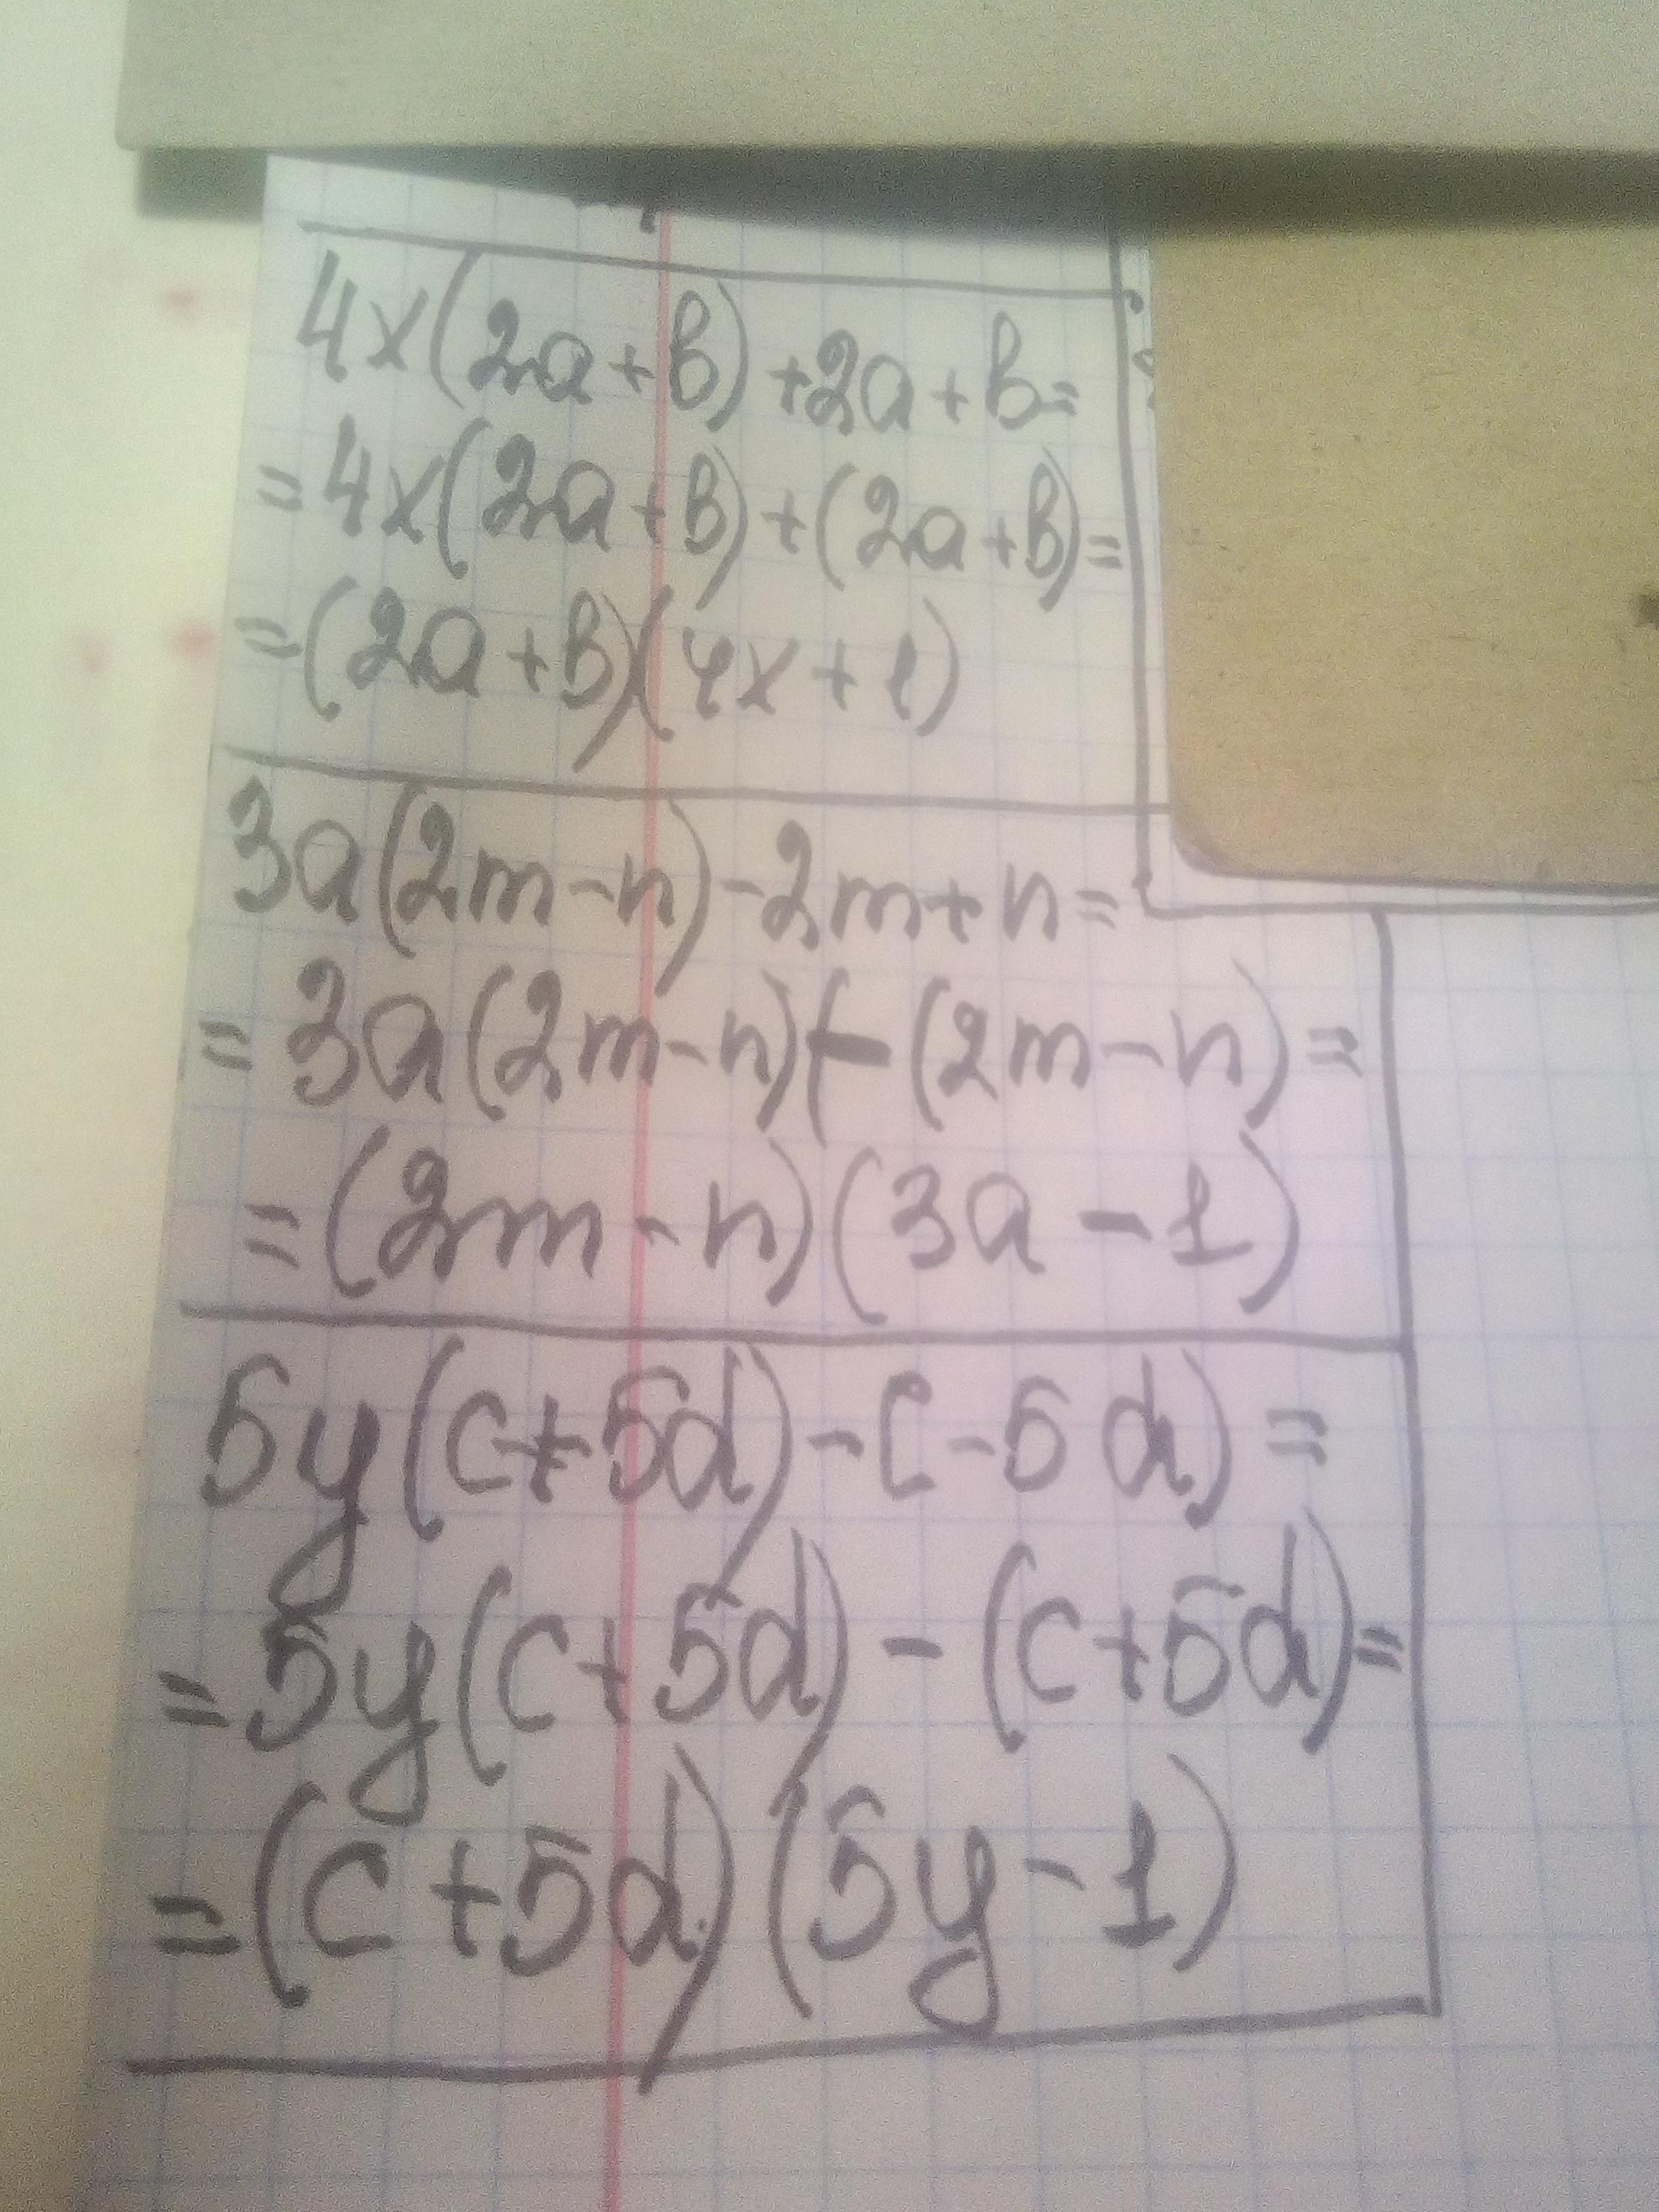 4x(2a+b)+2a+b=
=4x(2a+b)+(2a+b)=
=(2a+b)(4x+1)
3a(2m-n)-2m+n=
=3a(2m-n)(-(2m-n)=
=(2m-n)(3a-1)
5y(c+5d)-c-5d)=
=5y(c+5d)-(c+5d)=
=(c+5d)(5y-1)